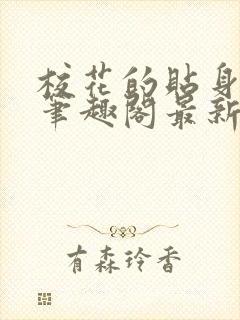 校花的贴身
笔趣阁最新
有森玲香